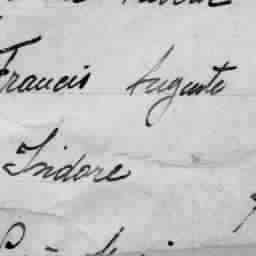 Francis Auguste
Isidore